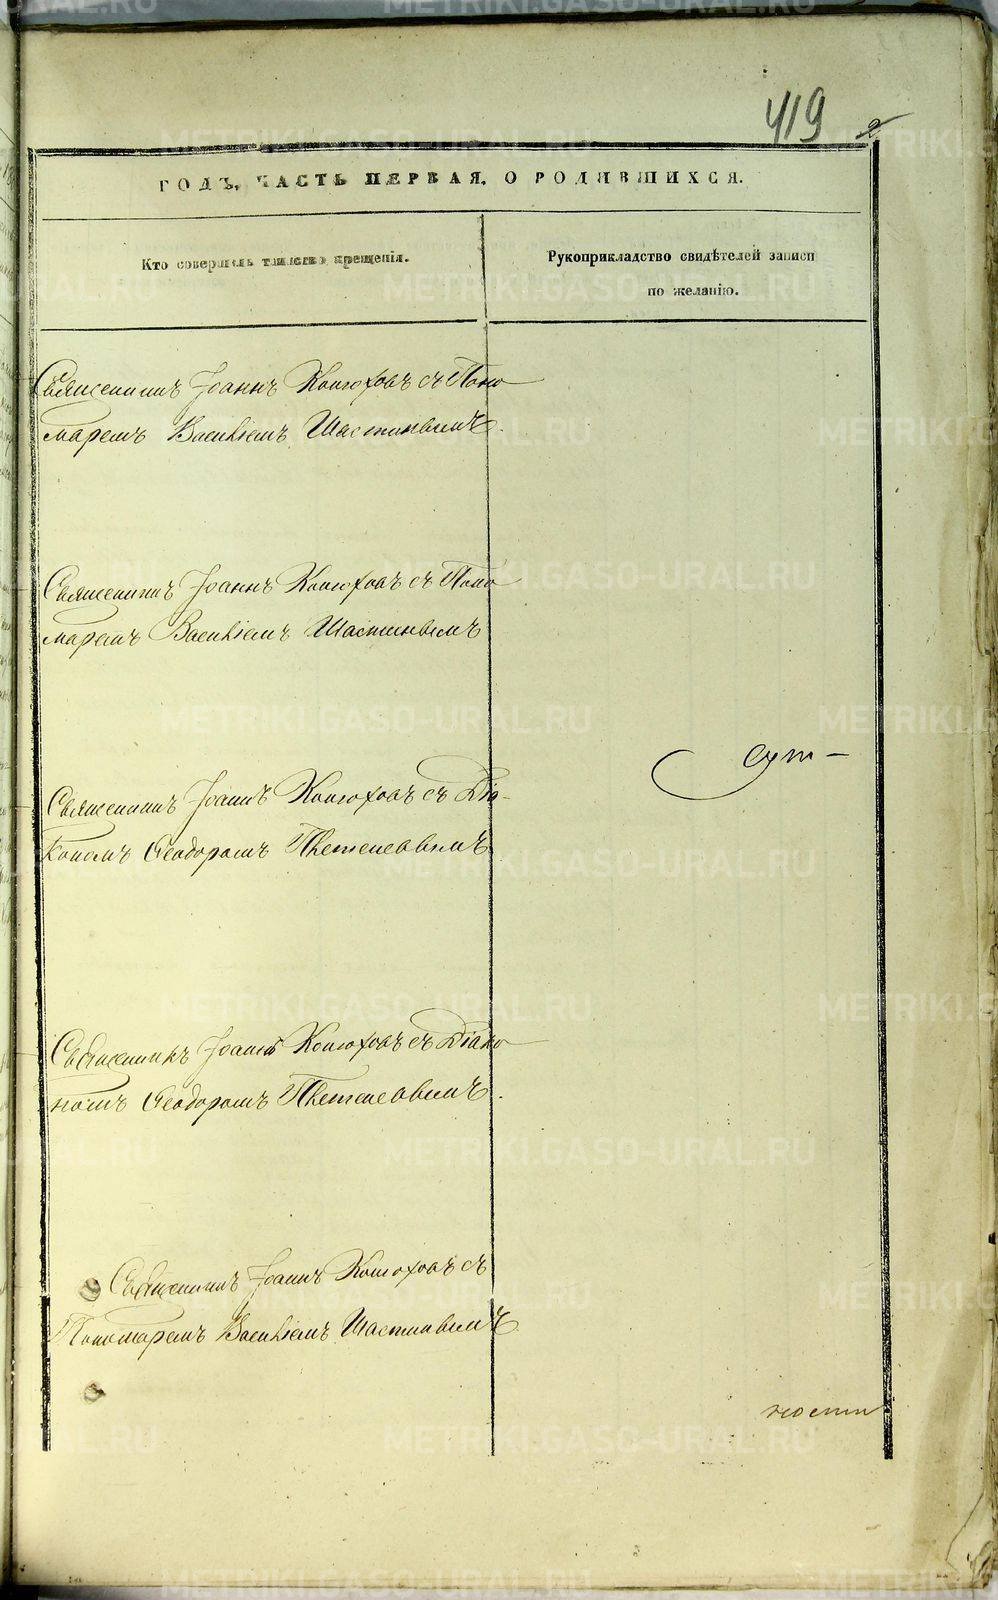 419 2
ГОДЪ, ЧАСТЬ ПЕРВАЯ, О РОДИВШИХСЯ.
Кто совершалъ таинство крещенія.
Рукоприкладство свидѣтелей записи
по желанію.
Священникъ Іоаннъ Конюховъ съ Поно
маремъ Василіемъ Шастинымъ.
Священникъ Іоаннъ Конюховъ съ Поно
маремъ Василіемъ Шастинымъ
Священникъ Іоаннъ Конюховъ съ Діа-
кономъ Ѳеодоромъ
Священникъ Іоаннъ Конюховъ съ Діако
номъ Ѳеодоромъ
Священникъ Іоаннъ Конюховъ съ
Пономаремъ Василіемъ Шастинымъ
METRIKI.GASO-URAL.RU